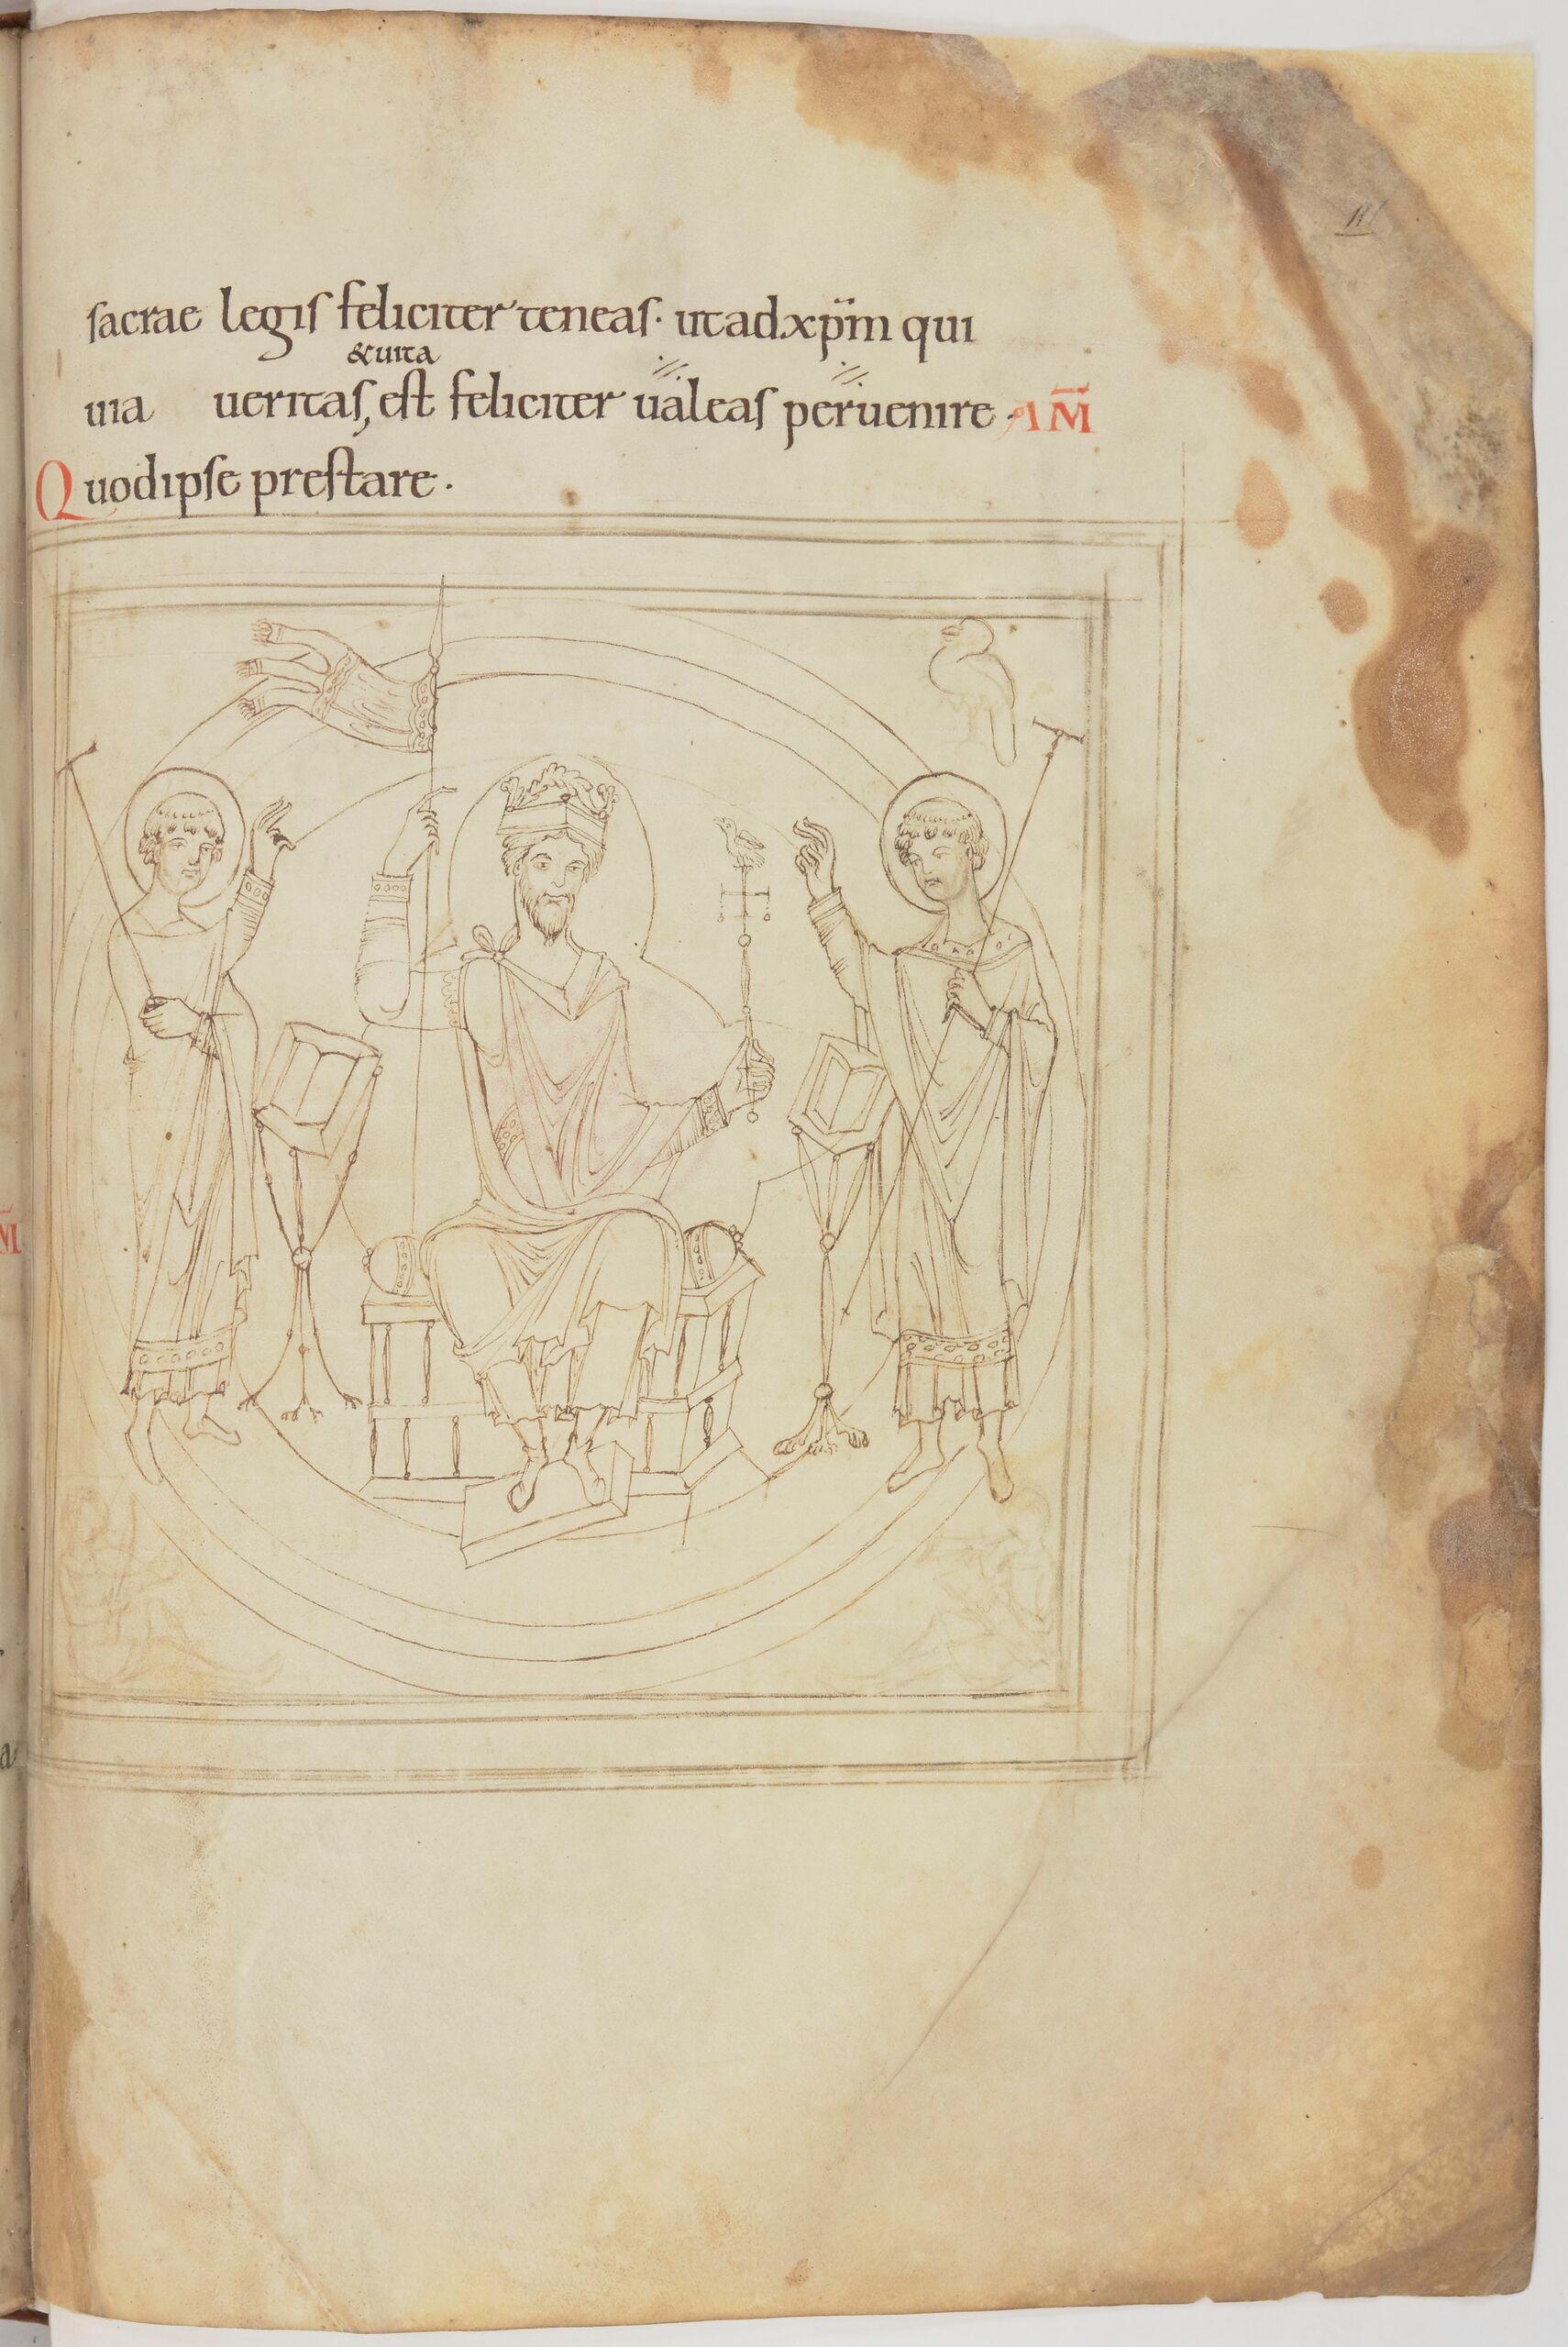 sacrae legis feliciter teneas· utad xp̄m qui
&uita
uia ueritas, est feliciter ualeas peruenire· AM̄
Quod ipse prestare·
M̄